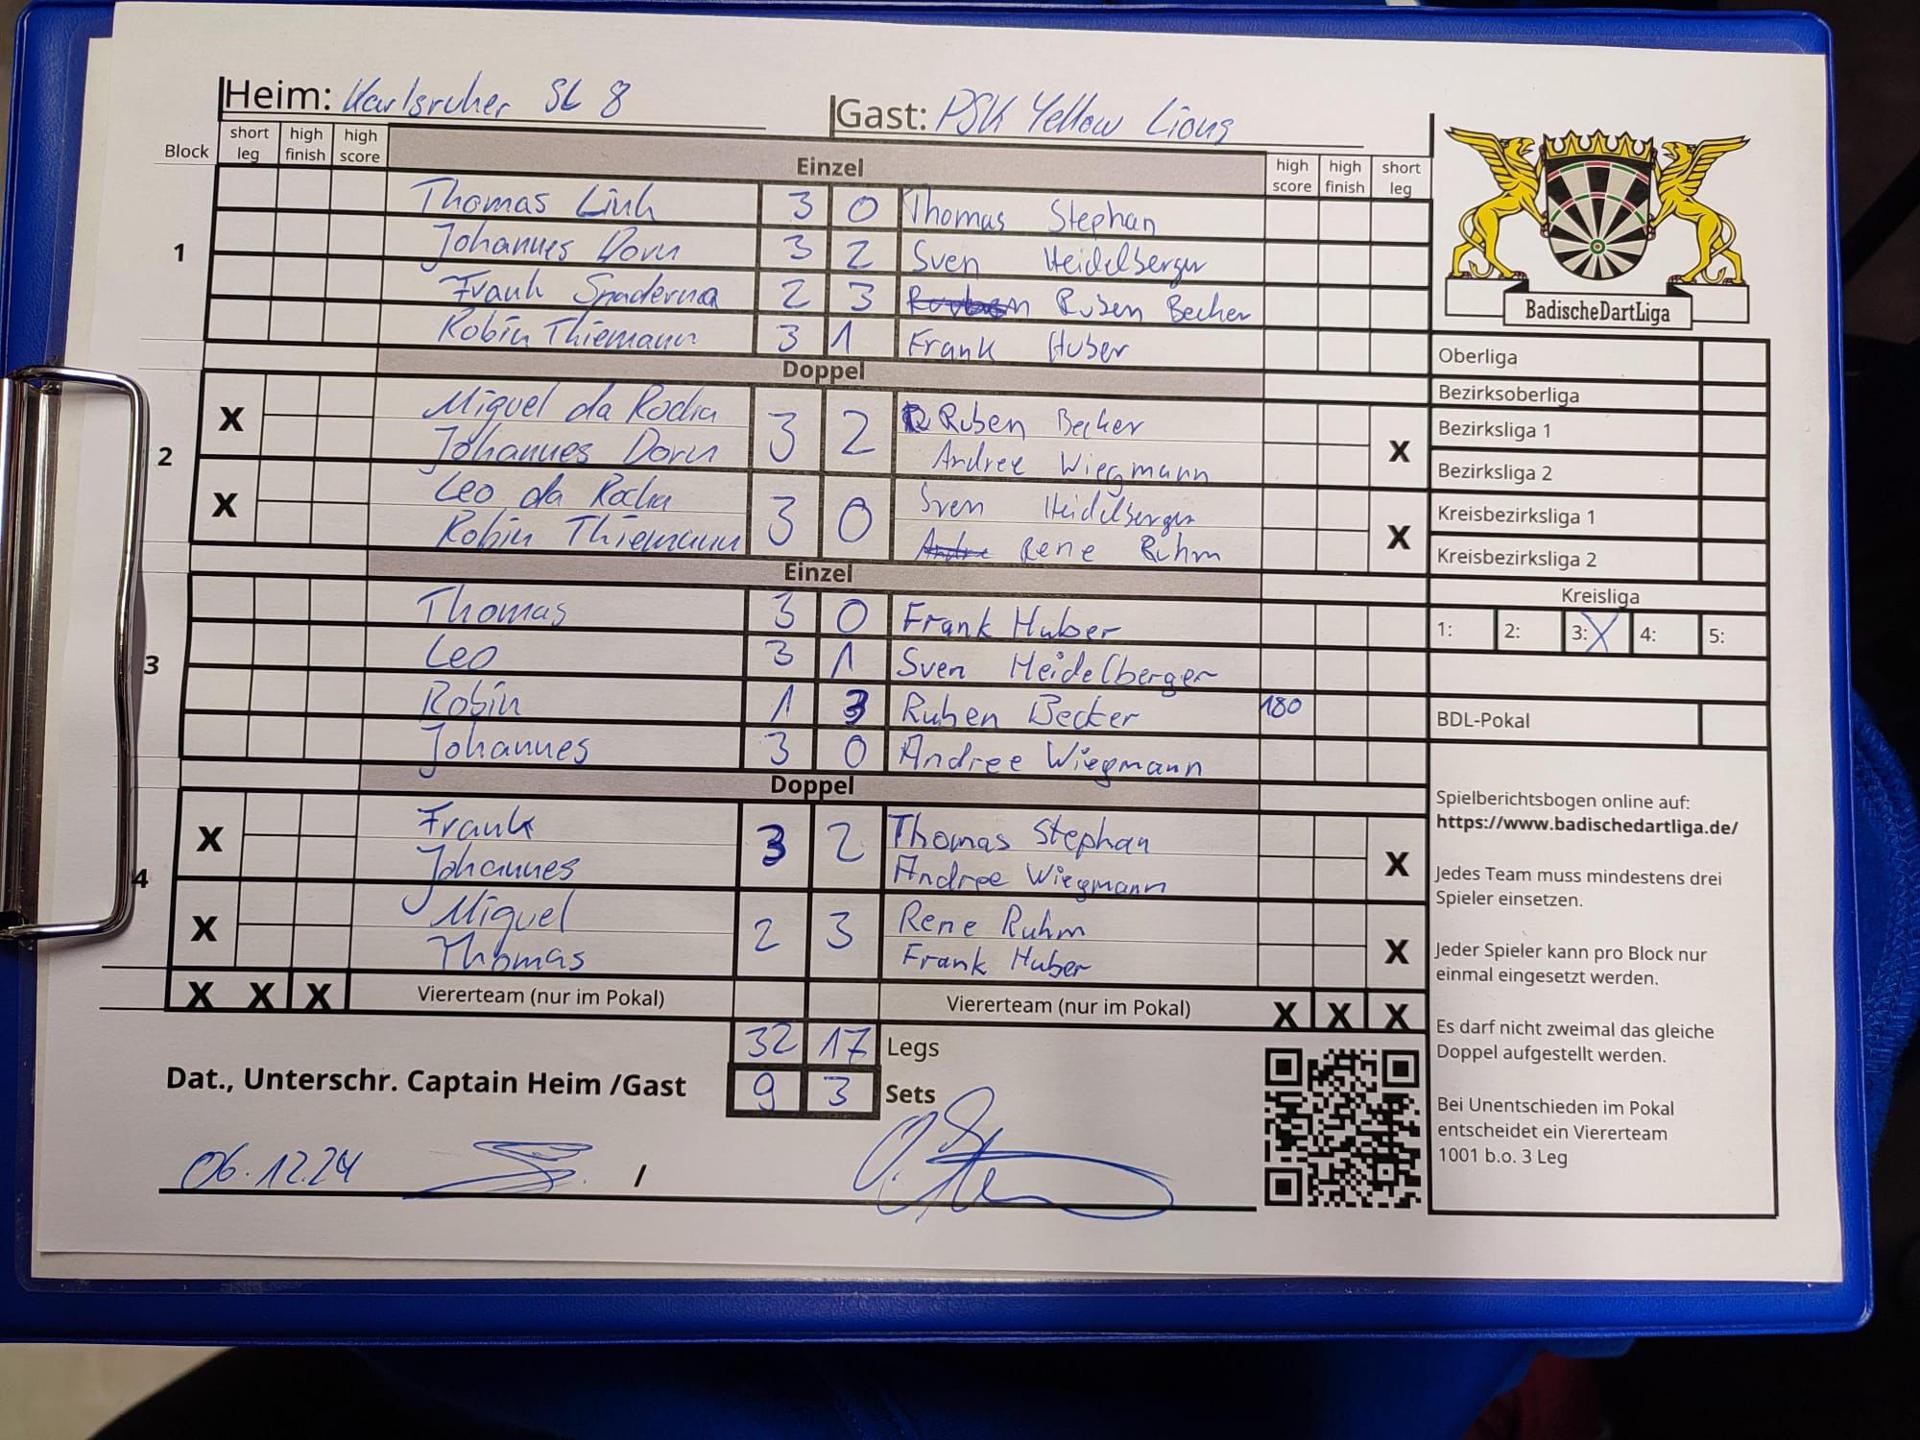 Heim: Karlsruher SC 8 Gast: PSK Yellow Lions
Block short leg high finish high score Einzel high score high finish short leg
1
Thomas Link 3 0 Thomas Stephan
Johannes Dorn 3 2 Sven Heidelberger
Frank Spaderna 2 3 Ruben Becker
Robin Thiemann 3 1 Frank Huber
Doppel
2
X Miguel da Rocha 3 2 Ruben Becker X
Johannes Dorn Andree Wiegmann
X Leo da Rocha 3 0 Sven Heidelberger X
Robin Thiemann Andre Rene Ruhm
Einzel
3
Thomas 3 0 Frank Huber
Leo 3 1 Sven Heidelberger
Robin 1 3 Ruben Becker 180
Johannes 3 0 Andree Wiegmann
Doppel
4
X Frank 3 2 Thomas Stephan X
Johannes Andree Wiegmann
X Miguel 2 3 Rene Ruhm X
Thomas Frank Huber
X X X Viererteam (nur im Pokal) Viererteam (nur im Pokal) X X X
32 17 Legs
Dat., Unterschr. Captain Heim /Gast 9 3 Sets
06.12.24 /
BadischeDartLiga
Oberliga
Bezirksoberliga
Bezirksliga 1
Bezirksliga 2
Kreisbezirksliga 1
Kreisbezirksliga 2
Kreisliga
1: 2: 3: X 4: 5:
BDL-Pokal
Spielberichtsbogen online auf:
https://www.badischedartliga.de/
Jedes Team muss mindestens drei
Spieler einsetzen.
Jeder Spieler kann pro Block nur
einmal eingesetzt werden.
Es darf nicht zweimal das gleiche
Doppel aufgestellt werden.
Bei Unentschieden im Pokal
entscheidet ein Viererteam
1001 b.o. 3 Leg